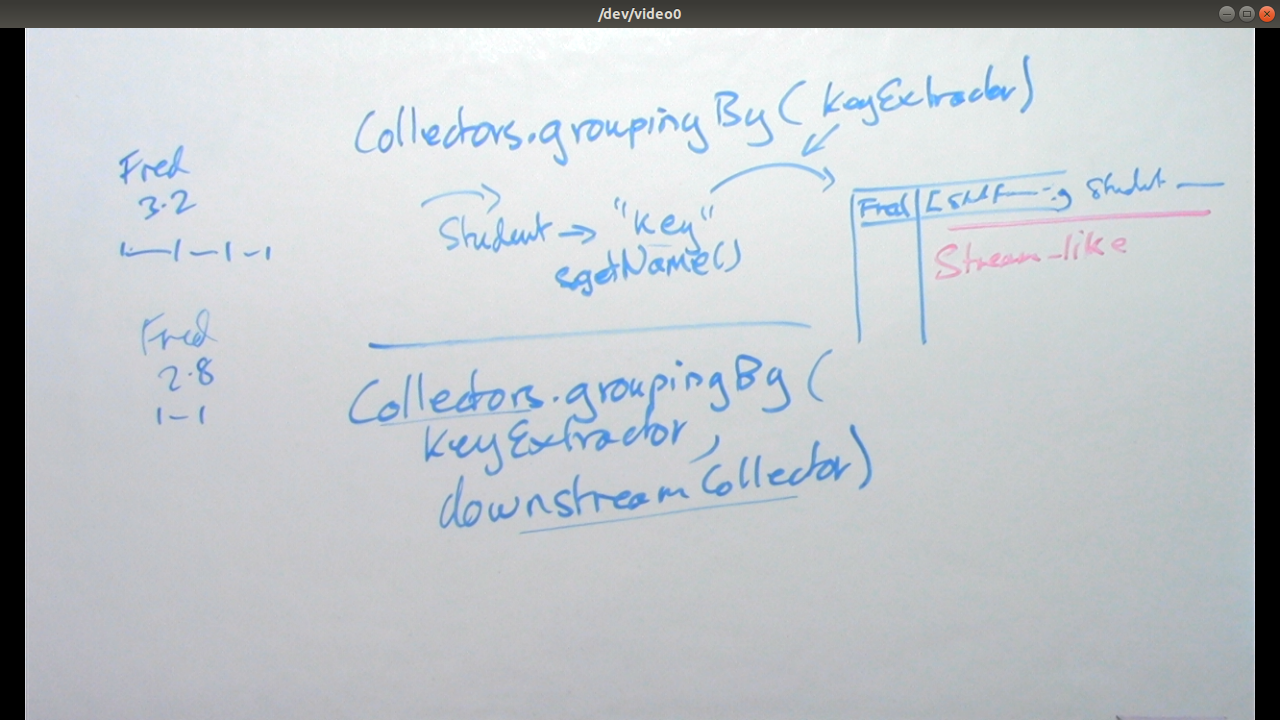 /dev/video0
Collectors.groupingBy(keyExtractor)
Fred
3.2
Student → "key"
getName()
Fred
Student
Stream-like
Fred
2.8
Collectors.groupingBy(
keyExtractor,
downstreamCollector)